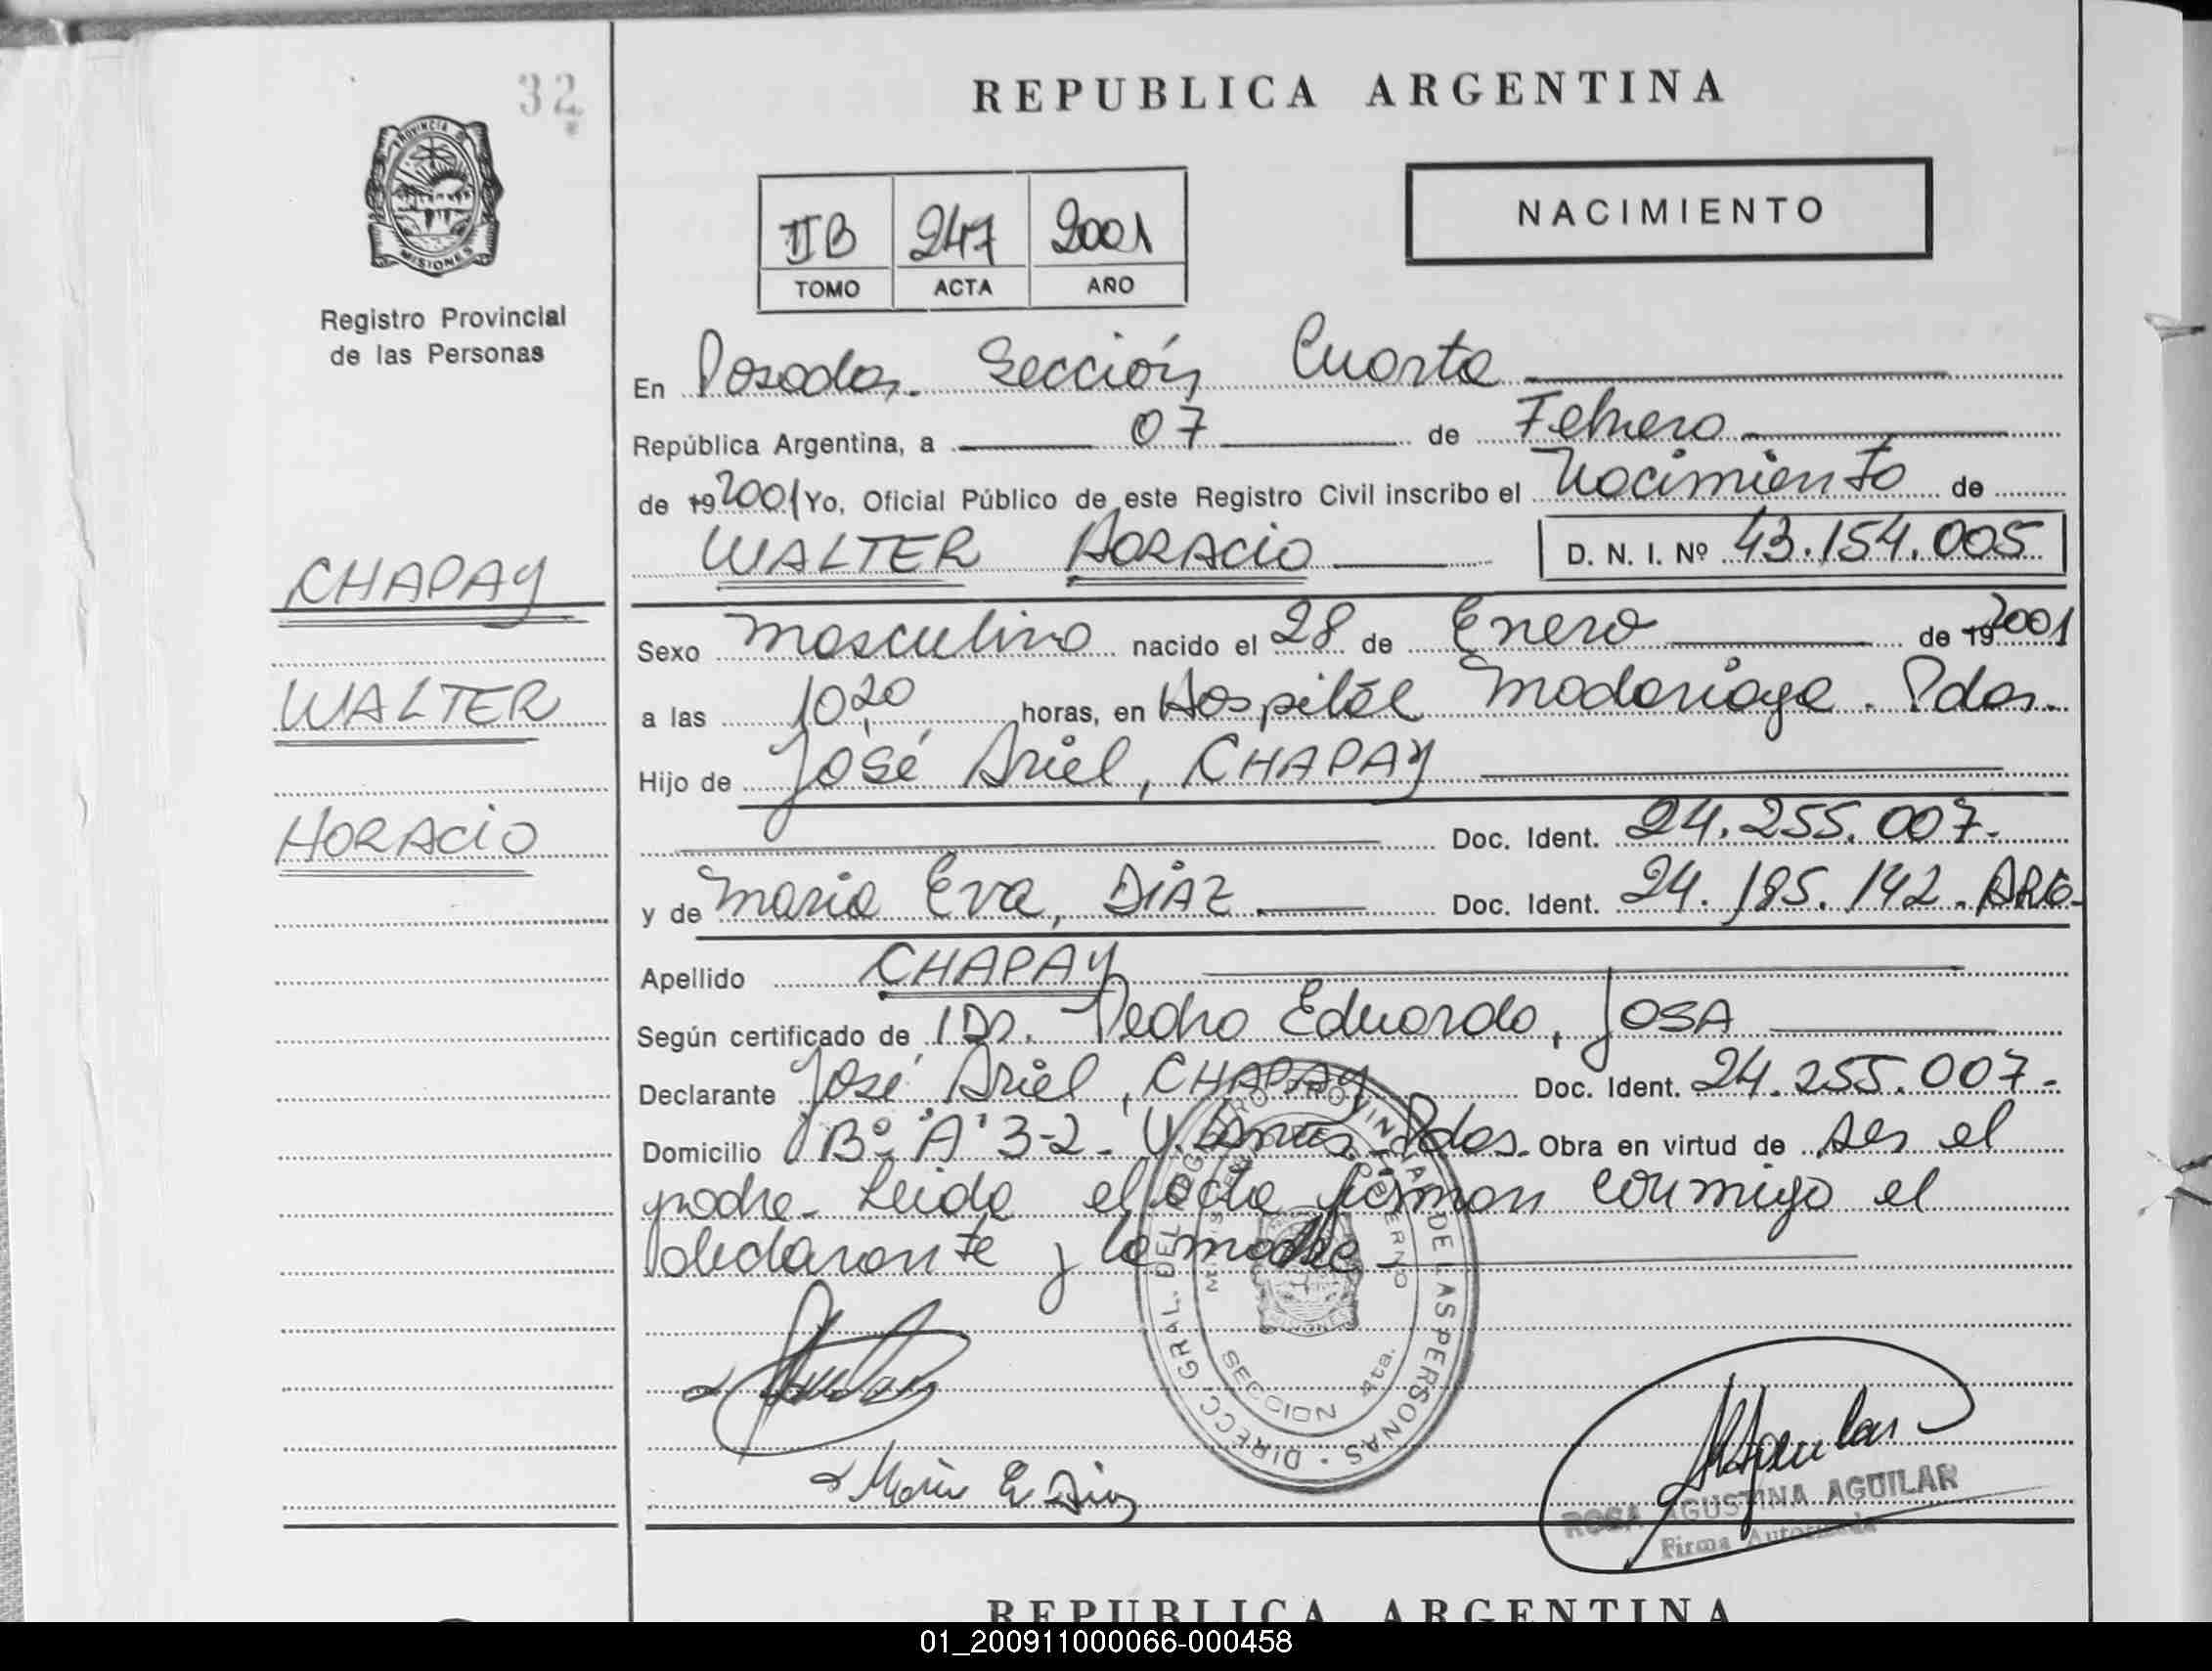 32
REPUBLICA ARGENTINA
PROVINCIA D
MISIONES
Registro Provincial
de las Personas
II B 247 2001
TOMO ACTA AÑO
NACIMIENTO
En Posadas. Sección Cuarta
República Argentina, a 07 de Febrero
de 19 2001 Yo, Oficial Público de este Registro Civil inscribo el Nacimiento de
WALTER HORACIO D. N. I. Nº 43.154.005
CHAPAY
Sexo masculino nacido el 28 de Enero de 19 2001
WALTER
a las 10,20 horas, en Hospital Madariaga. Pdas.
Hijo de José Ariel, CHAPAY
HORACIO
Doc. Ident. 24.255.007.
y de María Eva, DIAZ Doc. Ident. 24.185.142. ARG.
Apellido CHAPAY
Según certificado de Dr. Pedro Eduardo, JOSA
Declarante José Ariel, CHAPAY Doc. Ident. 24.255.007.
Domicilio Bº "A" 3-2- Pdas. Obra en virtud de ser el
padre. Leida el acta firman conmigo el
declarante y la madre.
DIRECC GRAL. DEL REGISTRO PROVINCIAL DE LAS PERSONAS
GOBIERNO
SECCION 4ta.
MISIONES
Maria E Diaz
RAAguilar
ROSA AGUSTINA AGUILAR
Firma Autorizada
REPUBLICA ARGENTINA
01_200911000066-000458